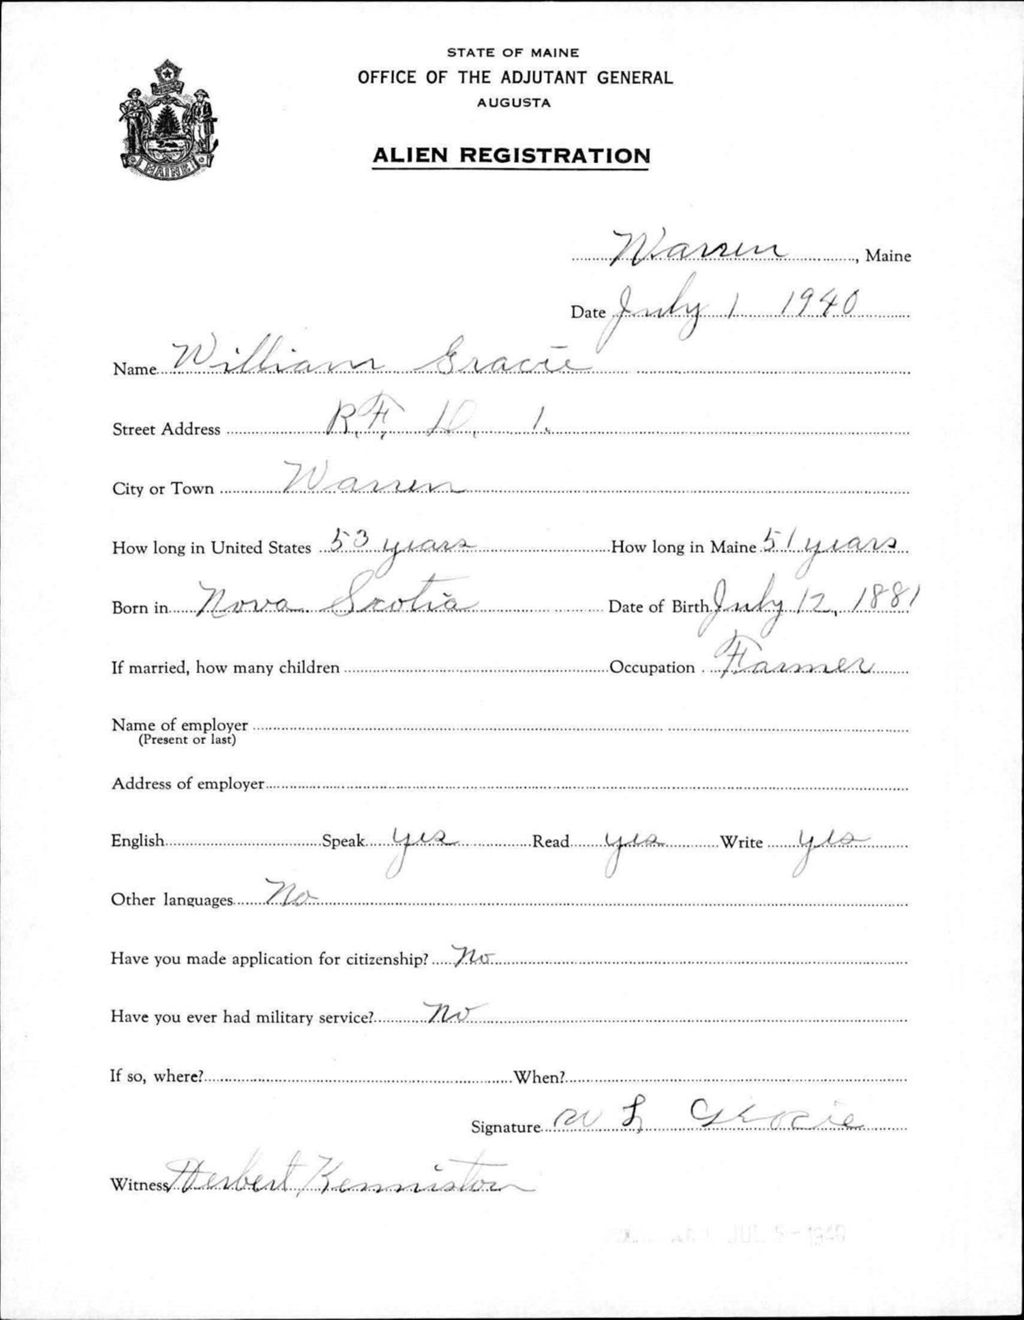 STATE OF MAINE
OFFICE OF THE ADJUTANT GENERAL
AUGUSTA
ALIEN REGISTRATION
MAINE
Warren, Maine
Date July 1 1940
Name William Gracie
Street Address R.F. D. 1.
City or Town Warren
How long in United States 53 years How long in Maine 51 years
Born in Nova Scotia Date of Birth July 12, 1881
If married, how many children Occupation Farmer
Name of employer
(Present or last)
Address of employer
English Speak yes Read yes Write yes
Other languages No
Have you made application for citizenship? No
Have you ever had military service? No
If so, where? When?
Signature W L Gracie
Witness Herbert Kenniston
JUL 1940